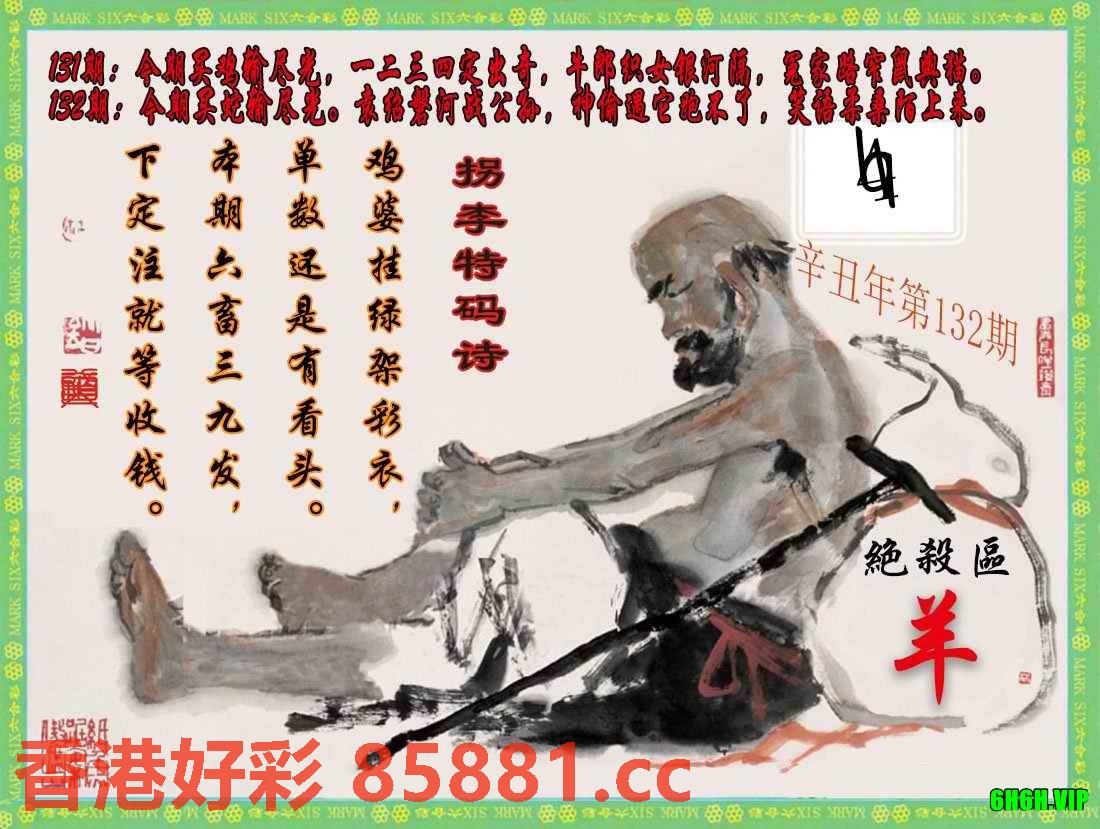 MARK SIX六合彩
131期：今期买鸡输尽光，一二三四定出奇，牛郎织女银河隔，冤家路窄鼠與猫。
132期：今期买蛇输尽光。袁绍磐河战公孙，神偷遇它跑不丫，笑语柔桑陌上来。
拐李特码诗
鸡婆挂绿架彩衣，
单数还是有看头。
本期六畜三九发，
下定注就等收钱。
辛丑年第132期
絕殺區
羊
香港好彩 85881.cc
6H6H.VIP